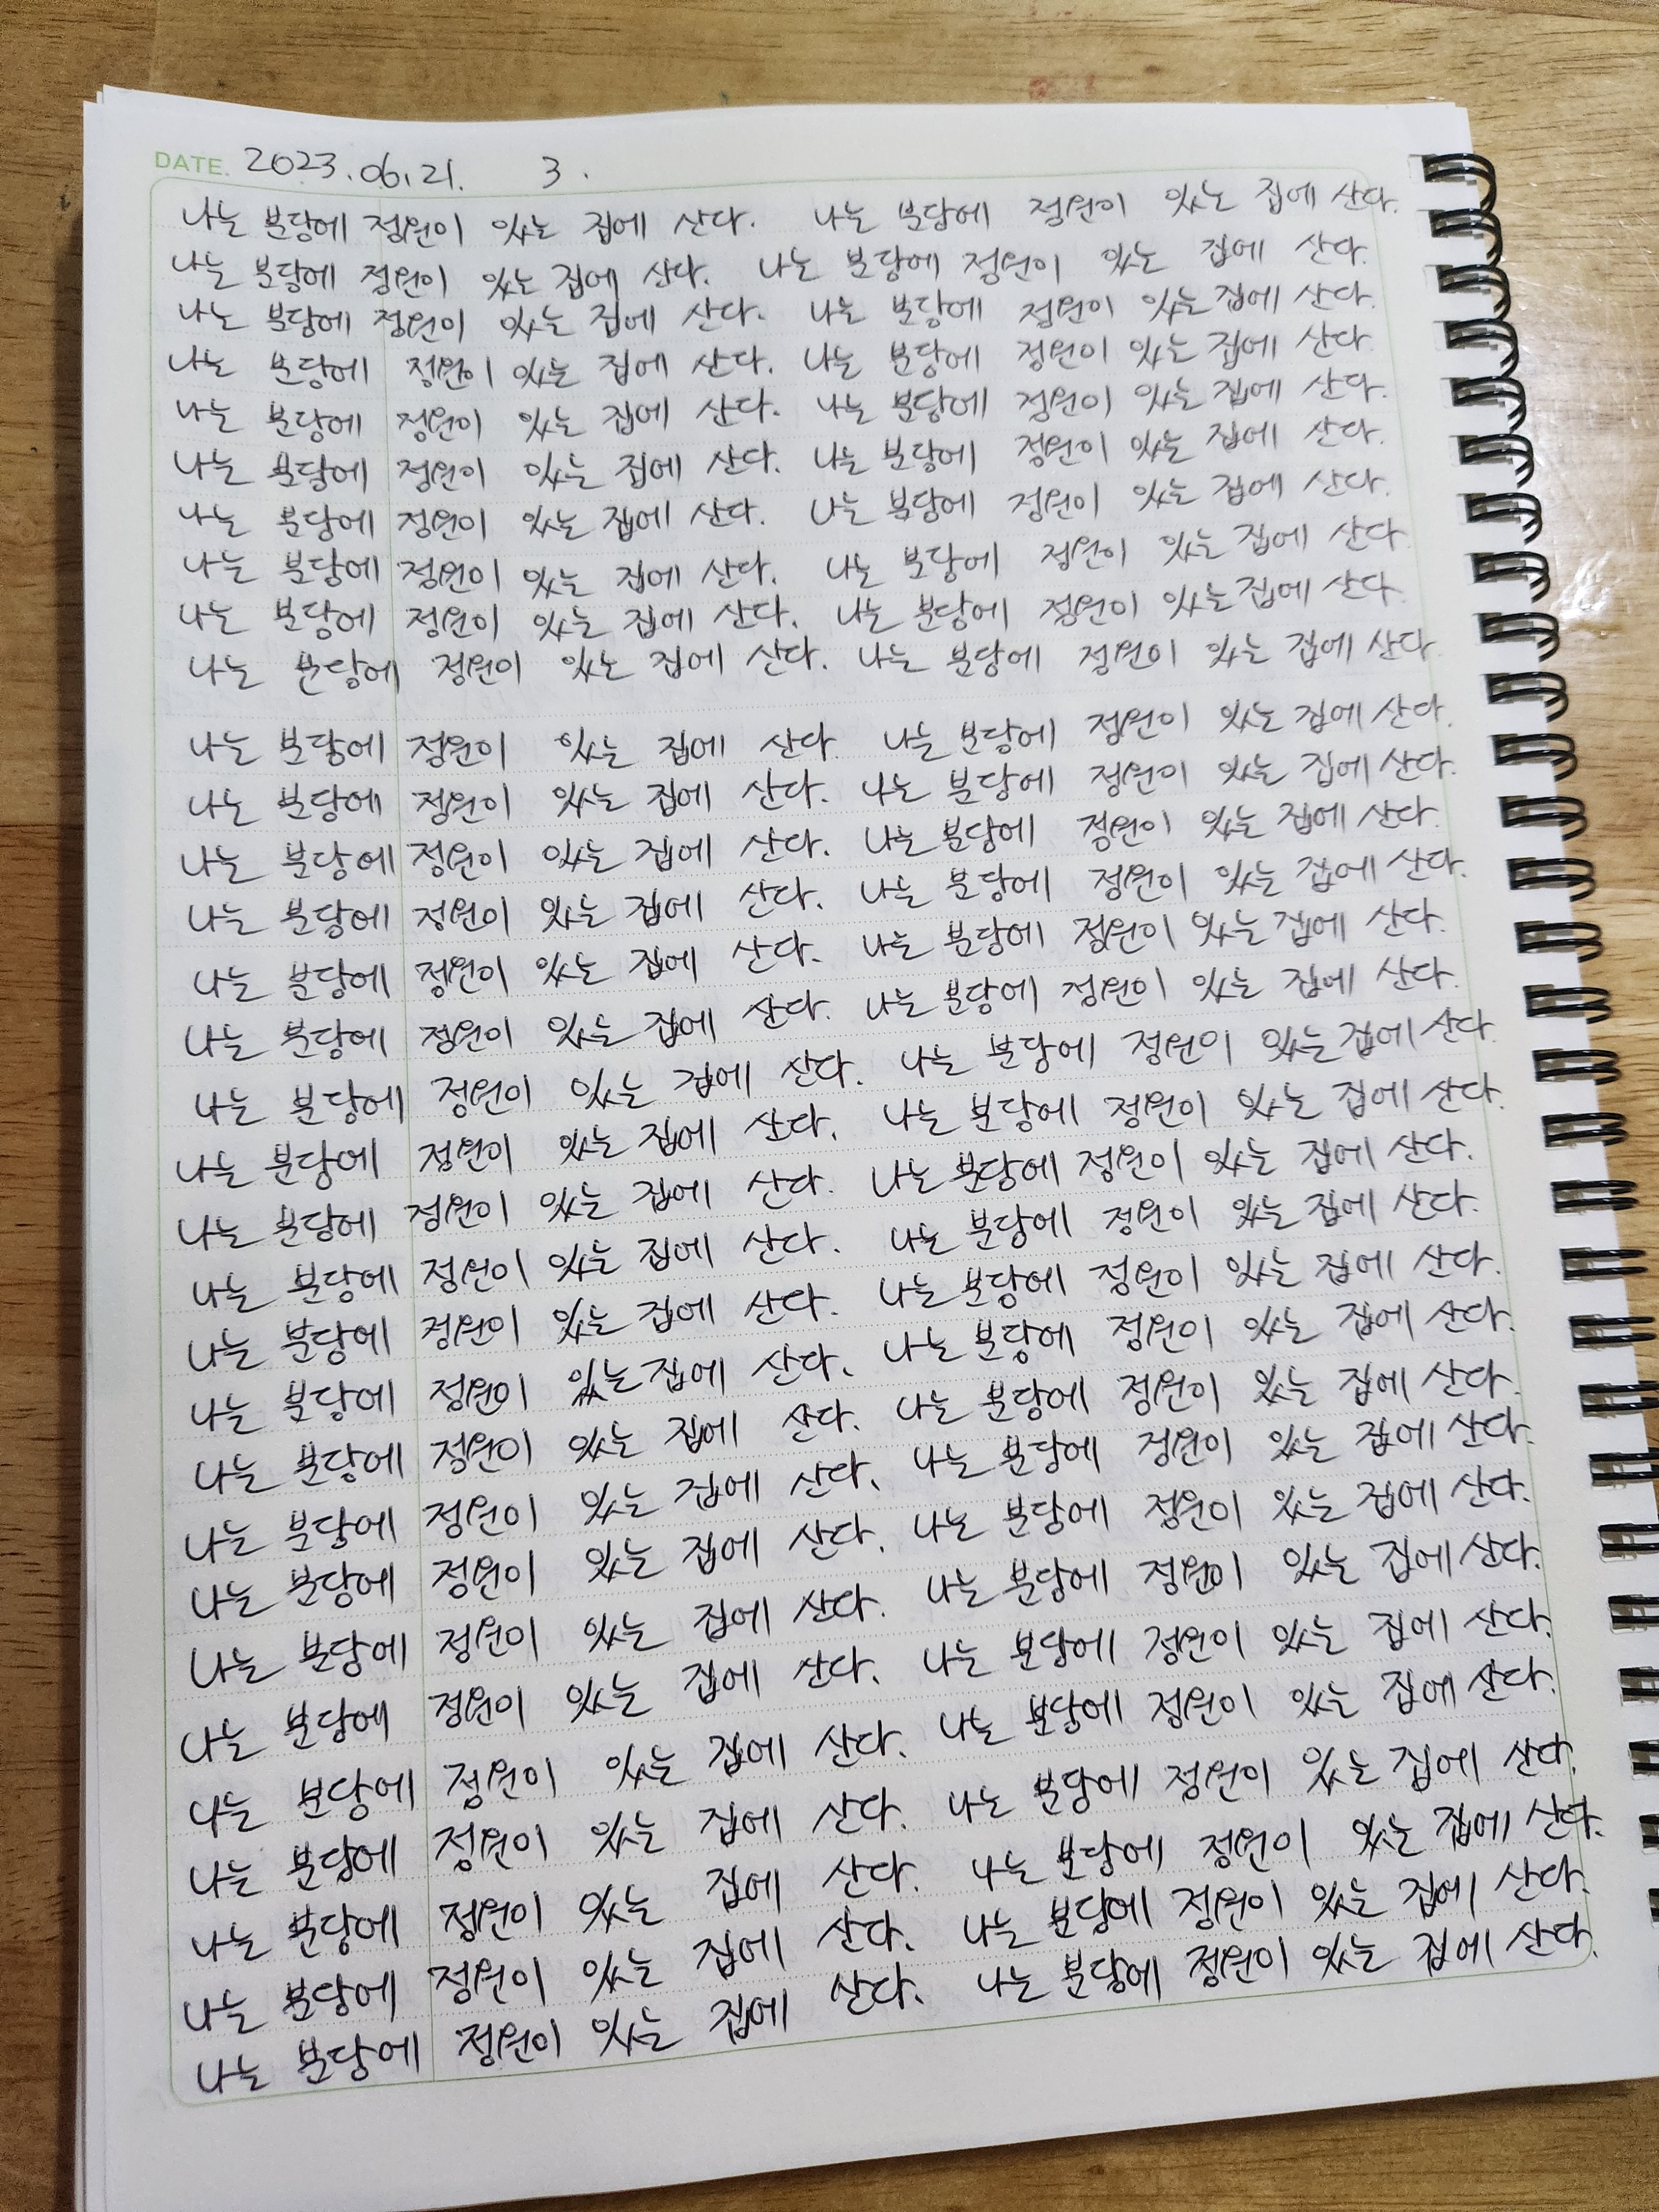 DATE. 2023.06.21. 3.
나는 분당에 정원이 있는 집에 산다. 나는 분당에 정원이 있는 집에 산다.
나는 분당에 정원이 있는 집에 산다. 나는 분당에 정원이 있는 집에 산다.
나는 분당에 정원이 있는 집에 산다. 나는 분당에 정원이 있는 집에 산다.
나는 분당에 정원이 있는 집에 산다. 나는 분당에 정원이 있는 집에 산다.
나는 분당에 정원이 있는 집에 산다. 나는 분당에 정원이 있는 집에 산다.
나는 분당에 정원이 있는 집에 산다. 나는 분당에 정원이 있는 집에 산다.
나는 분당에 정원이 있는 집에 산다. 나는 분당에 정원이 있는 집에 산다.
나는 분당에 정원이 있는 집에 산다. 나는 분당에 정원이 있는 집에 산다
나는 분당에 정원이 있는 집에 산다. 나는 분당에 정원이 있는 집에 산다.
나는 분당에 정원이 있는 집에 산다. 나는 분당에 정원이 있는 집에 산다.
나는 분당에 정원이 있는 집에 산다. 나는 분당에 정원이 있는 집에 산다.
나는 분당에 정원이 있는 집에 산다. 나는 분당에 정원이 있는 집에 산다.
나는 분당에 정원이 있는 집에 산다. 나는 분당에 정원이 있는 집에 산다.
나는 분당에 정원이 있는 집에 산다. 나는 분당에 정원이 있는 집에 산다.
나는 분당에 정원이 있는 집에 산다. 나는 분당에 정원이 있는 집에 산다.
나는 분당에 정원이 있는 집에 산다. 나는 분당에 정원이 있는 집에 산다.
나는 분당에 정원이 있는 집에 산다. 나는 분당에 정원이 있는 집에 산다.
나는 분당에 정원이 있는 집에 산다. 나는 분당에 정원이 있는 집에 산다.
나는 분당에 정원이 있는 집에 산다. 나는 분당에 정원이 있는 집에 산다.
나는 분당에 정원이 있는 집에 산다. 나는 분당에 정원이 있는 집에 산다.
나는 분당에 정원이 있는 집에 산다. 나는 분당에 정원이 있는 집에 산다.
나는 분당에 정원이 있는 집에 산다. 나는 분당에 정원이 있는 집에 산다.
나는 분당에 정원이 있는 집에 산다. 나는 분당에 정원이 있는 집에 산다.
나는 분당에 정원이 있는 집에 산다. 나는 분당에 정원이 있는 집에 산다.
나는 분당에 정원이 있는 집에 산다. 나는 분당에 정원이 있는 집에 산다.
나는 분당에 정원이 있는 집에 산다. 나는 분당에 정원이 있는 집에 산다.
나는 분당에 정원이 있는 집에 산다. 나는 분당에 정원이 있는 집에 산다.
나는 분당에 정원이 있는 집에 산다. 나는 분당에 정원이 있는 집에 산다.
나는 분당에 정원이 있는 집에 산다. 나는 분당에 정원이 있는 집에 산다.
나는 분당에 정원이 있는 집에 산다. 나는 분당에 정원이 있는 집에 산다.
나는 분당에 정원이 있는 집에 산다. 나는 분당에 정원이 있는 집에 산다.
나는 분당에 정원이 있는 집에 산다. 나는 분당에 정원이 있는 집에 산다.